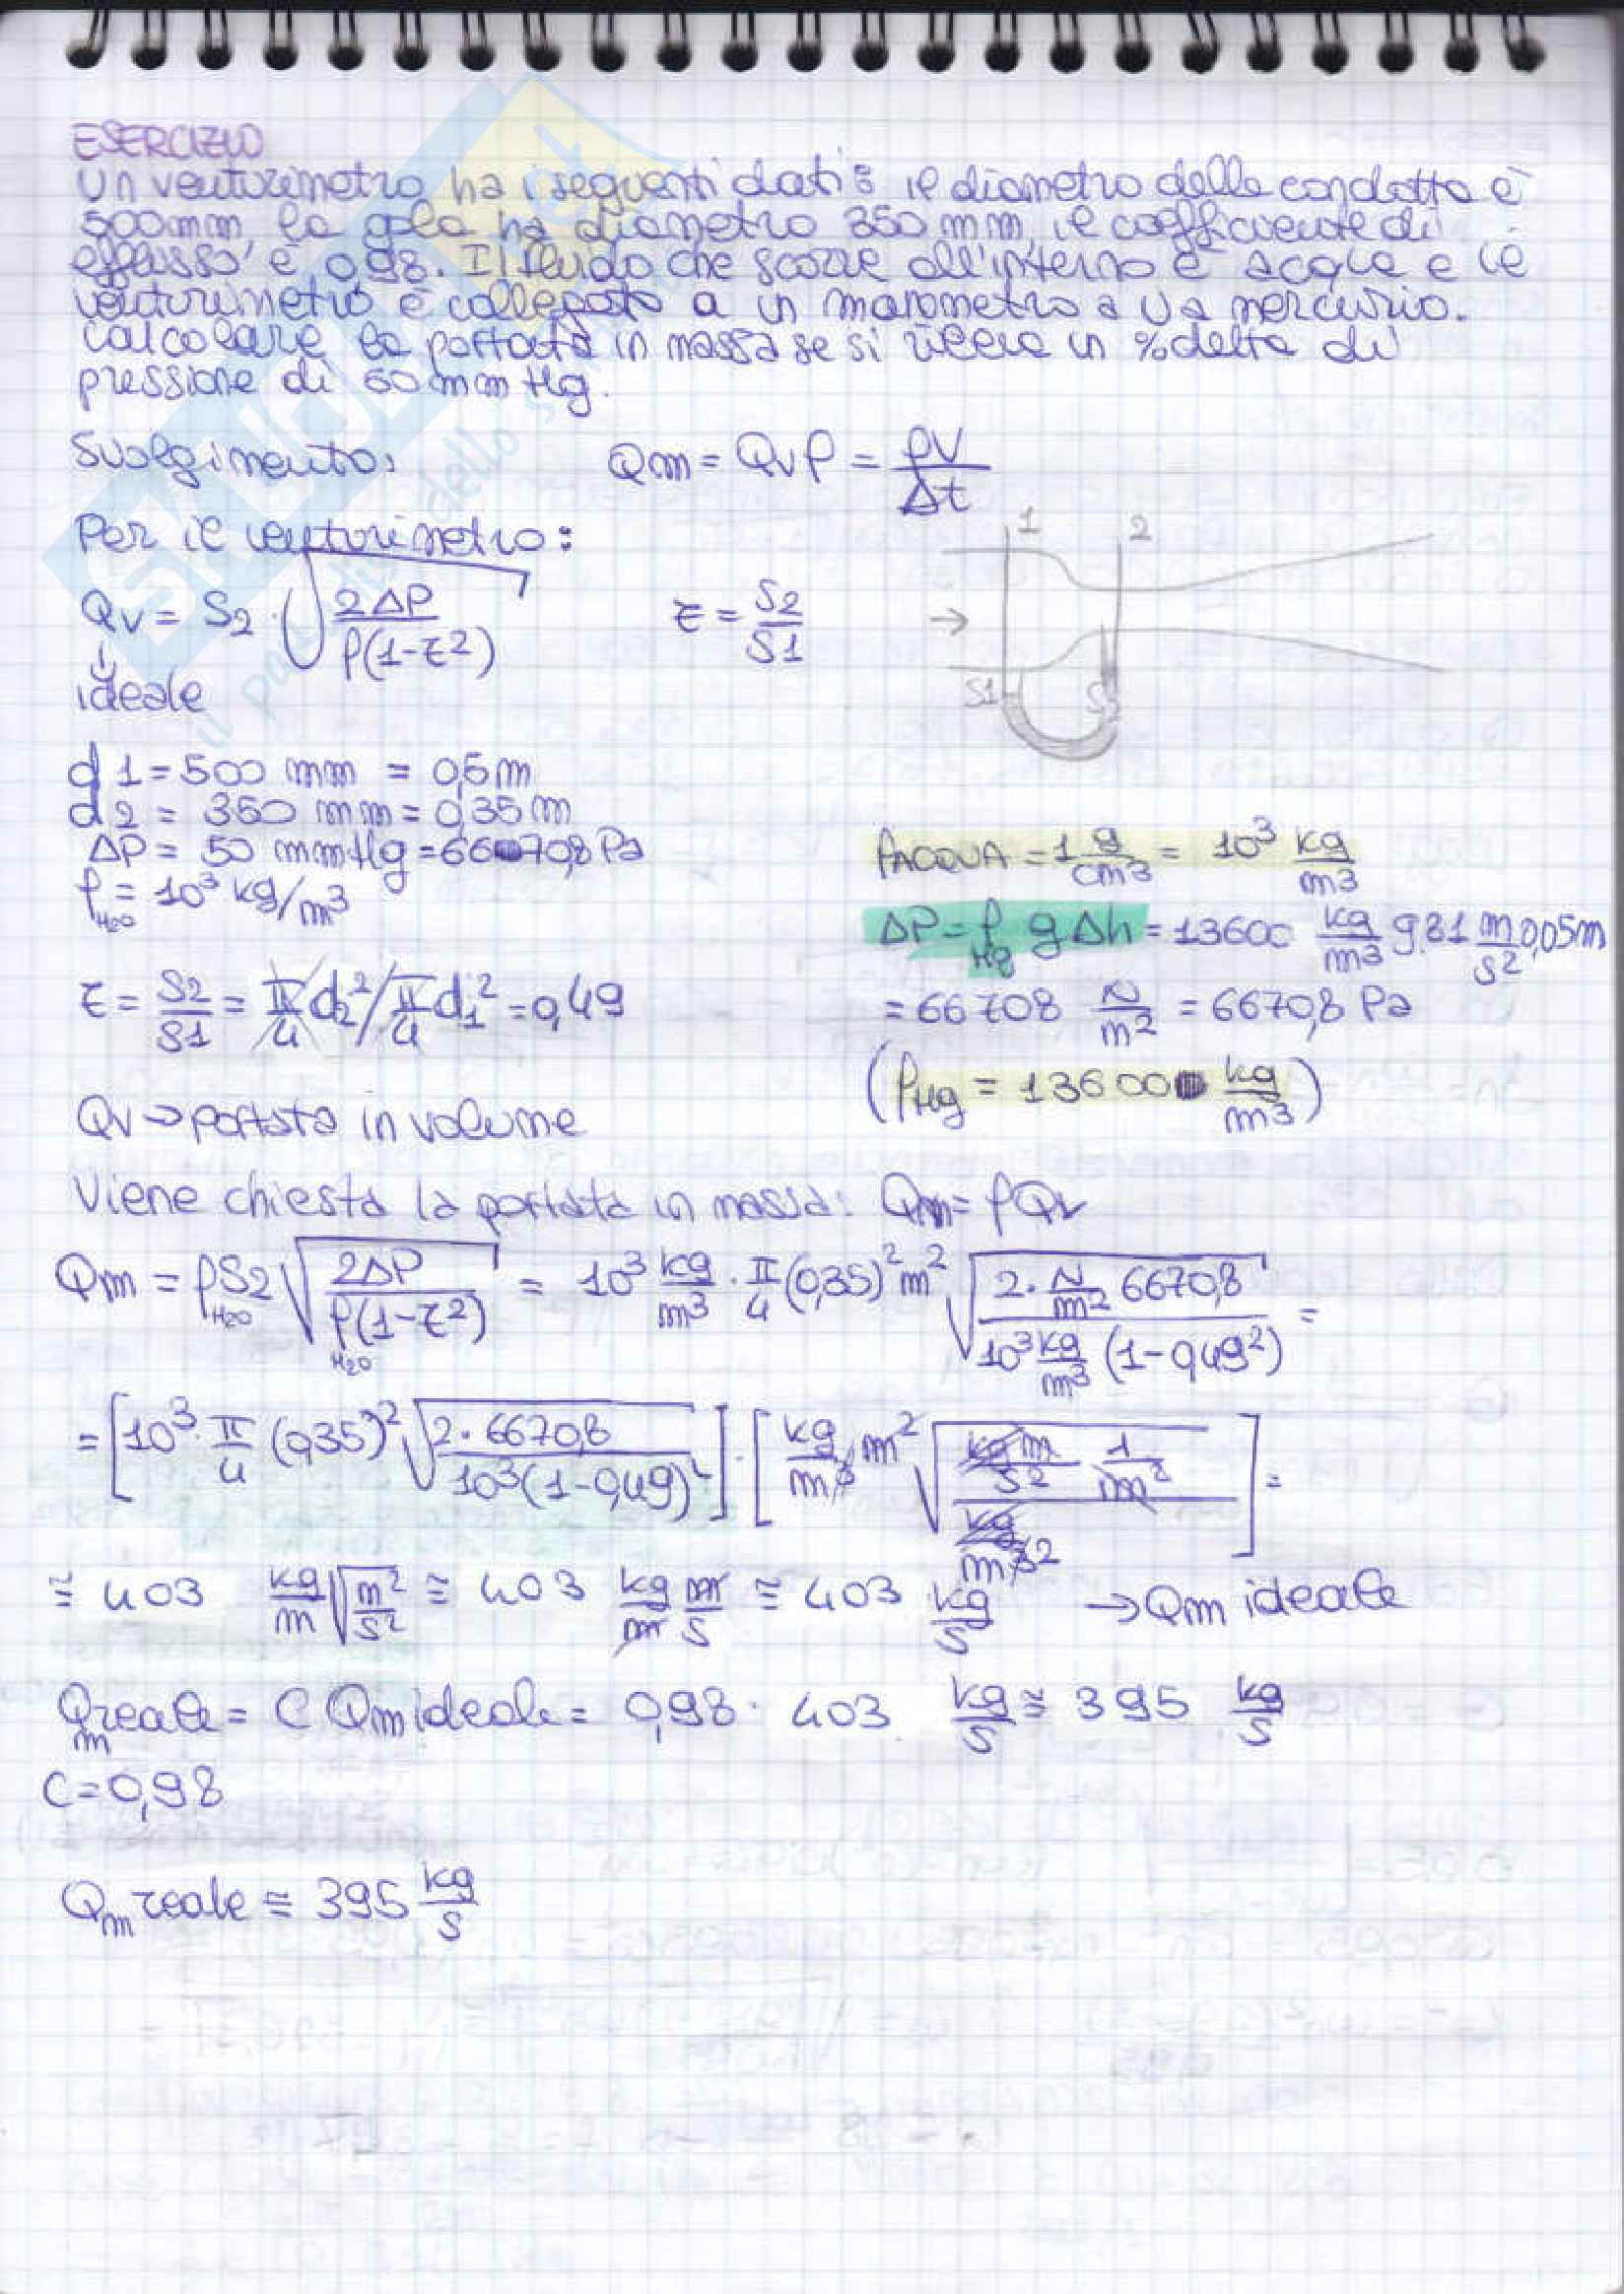 ESERCIZIO
Un venturimetro ha i seguenti dati: il diametro della condotta è
500mm la gola ha diametro 350 mm, il coefficiente di
efflusso è 0,98. Il fluido che scorre all'interno è acqua e il
venturimetro è collegato a un manometro a U a mercurio.
Calcolare la portata in massa se si rileva un %delta di
pressione di 50 mm Hg.
Svolgimento: Qm = Qv ρ = ρV/Δt
Per il venturimetro:
1 2
Qv = S2 · √(2ΔP / ρ(1-τ²)) τ = S2/S1 →
↓
ideale
S1 S2
d1 = 500 mm = 0,5m
d2 = 350 mm = 0,35m
ΔP = 50 mmHg = 6670,8 Pa
ρH2O = 10³ kg/m³
ρACQUA = 1 g/cm³ = 10³ kg/m³
ΔP = ρHg g Δh = 13600 kg/m³ 9.81 m/s² 0,05m
τ = S2/S1 = π/4 d2² / π/4 d1² = 0,49
= 66708 N/m² = 6670,8 Pa
(ρHg = 13600 kg/m³)
Qv → portata in volume
Viene chiesta la portata in massa: Qm = ρQv
Qm = ρH2O S2 √(2ΔP / ρH2O(1-τ²)) = 10³ kg/m³ · π/4 (0,35)² m² √(2· N/m² 6670,8 / 10³ kg/m³ (1-0,49²)) =
= [10³ · π/4 (0,35)² √(2·6670,8 / 10³(1-0,49)²)] · [kg/m³ m² √(kg m/s² 1/m² / kg/m³²)] =
≅ 403 kg/m √(m²/s²) ≅ 403 kg/m m/s ≅ 403 kg/s → Qm ideale
Qm reale = C Qm ideale = 0,98 · 403 kg/s ≅ 395 kg/s
C = 0,98
Qm reale ≅ 395 kg/s